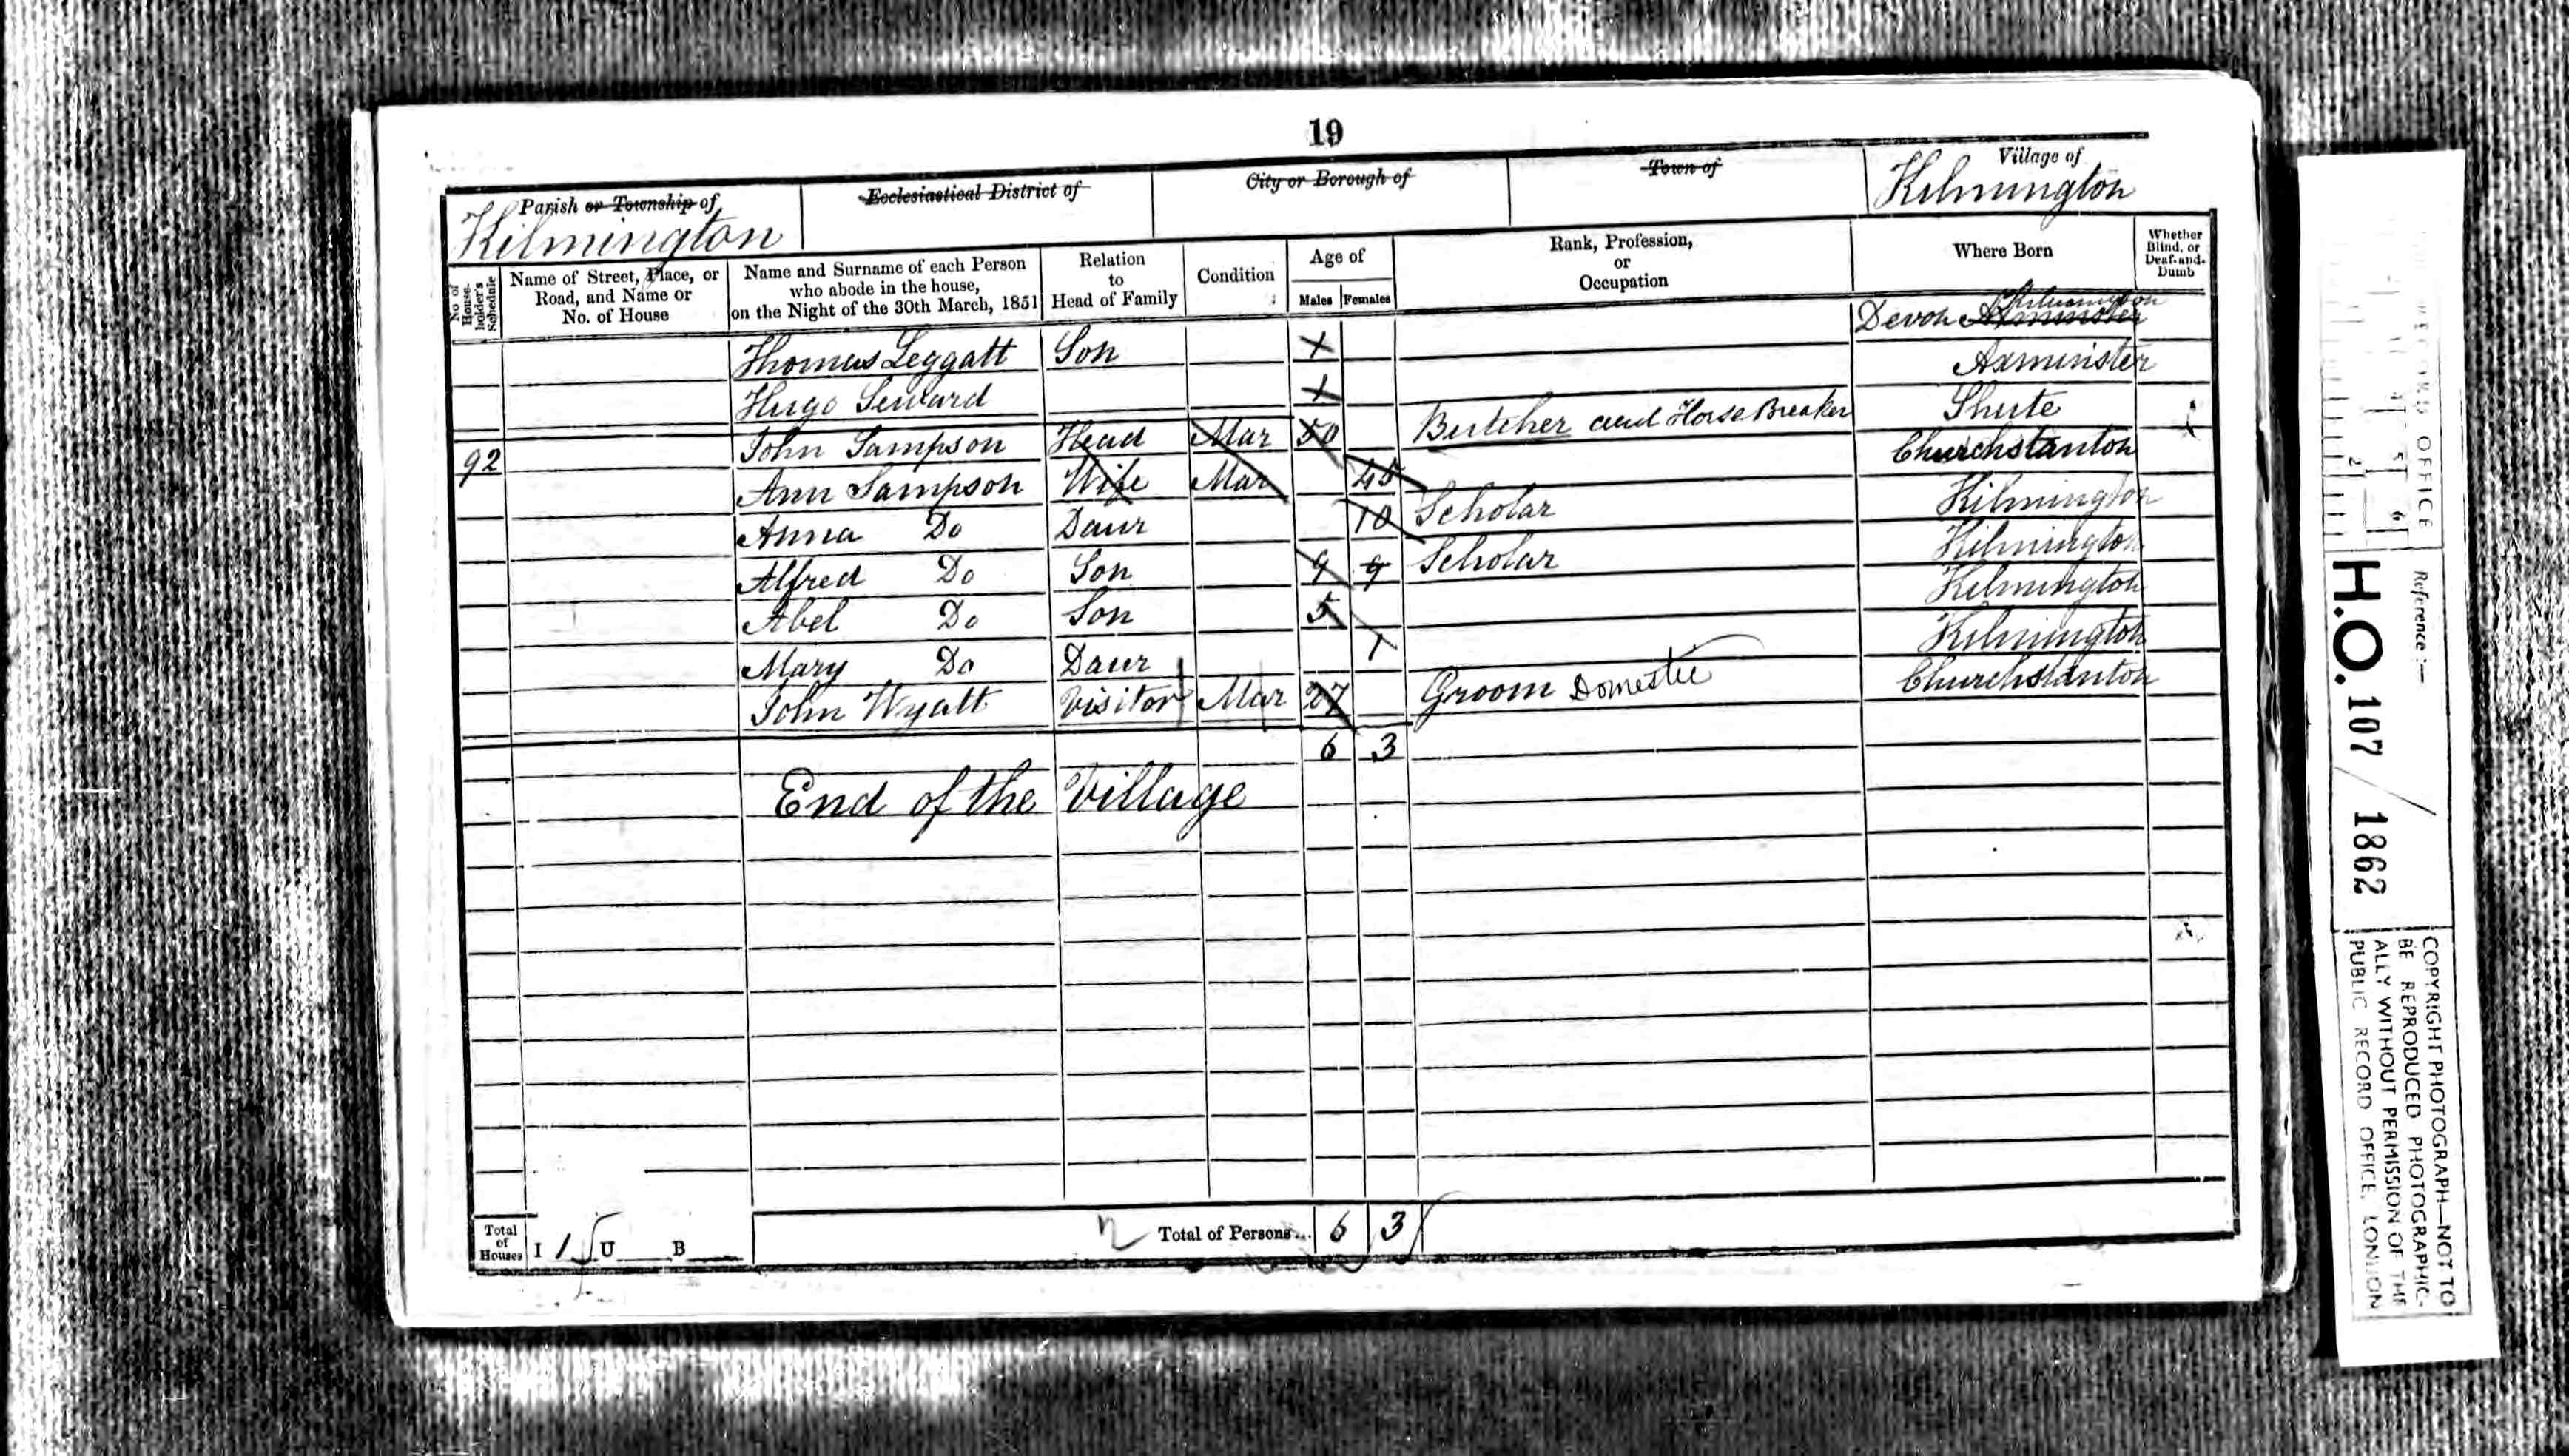 19
Parish or Township of Kilmington
Ecclesiastical District of
City or Borough of
Town of
Village of Kilmington
No. of House-holder's Schedule
Name of Street, Place, or Road, and Name or No. of House
Name and Surname of each Person who abode in the house, on the Night of the 30th March, 1851
Relation to Head of Family
Condition
Age of
Males Females
Rank, Profession, or Occupation
Where Born
Whether Blind, or Deaf-and-Dumb
Thomas Leggatt Son Devon Axminster Kilmington
Hugo Seward Axminster
92 John Sampson Head Mar 50 Butcher and Horse Breaker Shute
Ann Sampson Wife Mar 45 Churchstanton
Anna Do Daur 10 Scholar Kilmington
Alfred Do Son 9 9 Scholar Kilmington
Abel Do Son 5 Kilmington
Mary Do Daur 1 Kilmington
John Wyatt Visitor Mar 27 Groom Domestic Churchstanton
6 3
End of the Village
Total of Houses I 1 U B
Total of Persons... 6 3
OFFICE
Reference :—
H.O. 107 / 1862
COPYRIGHT PHOTOGRAPH—NOT TO
BE REPRODUCED PHOTOGRAPHIC-
ALLY WITHOUT PERMISSION OF THE
PUBLIC RECORD OFFICE, LONDON